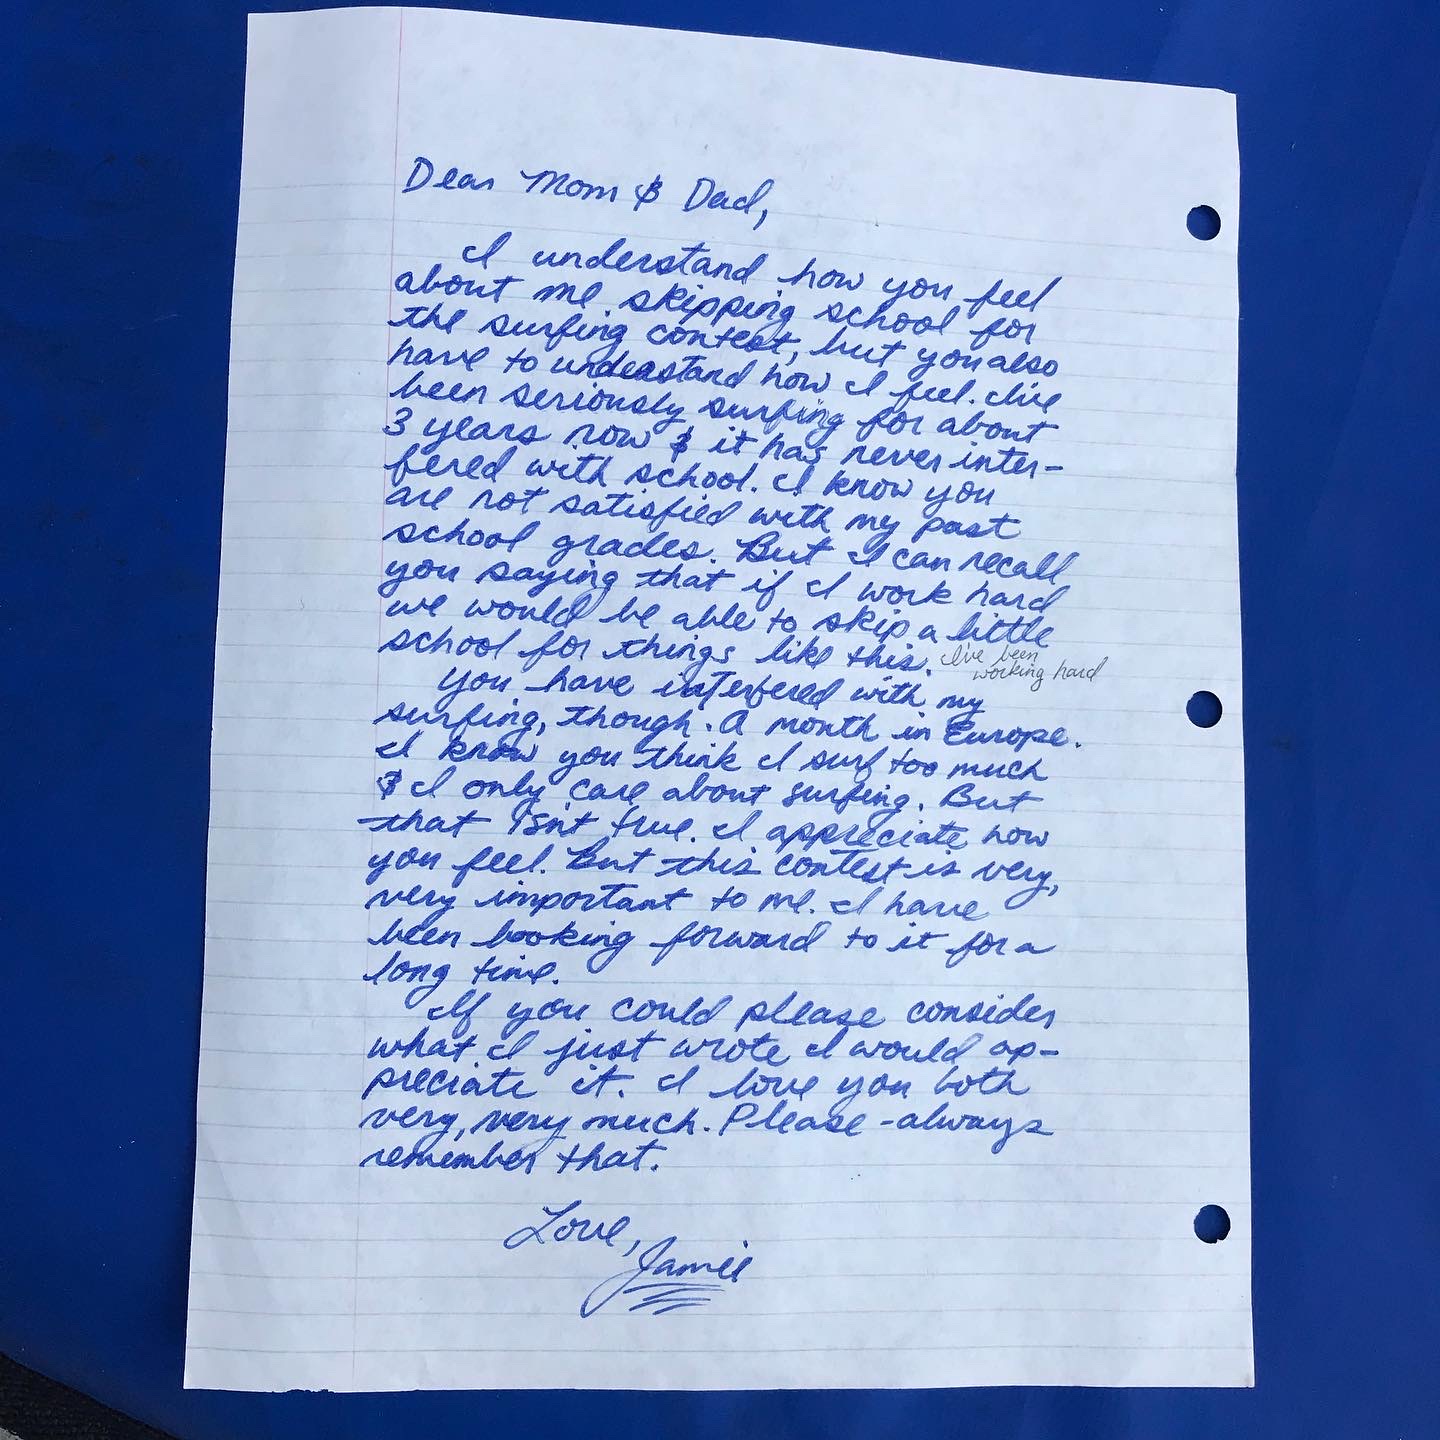 Dear Mom & Dad,
I understand how you feel
about me skipping school for
the surfing contest, but you also
have to understand how I feel. I've
been seriously surfing for about
3 years now & it has never inter-
fered with school. I know you
are not satisfied with my past
school grades. But I can recall
you saying that if I work hard
we would be able to skip a little
school for things like this. I've been
working hard
You have interfered with my
surfing, though. A month in Europe.
I know you think I surf too much
& I only care about surfing. But
that isn't true. I appreciate how
you feel. But this contest is very,
very important to me. I have
been looking forward to it for a
long time.
If you could please consider
what I just wrote I would ap-
preciate it. I love you both
very, very much. Please - always
remember that.
Love,
Jamie